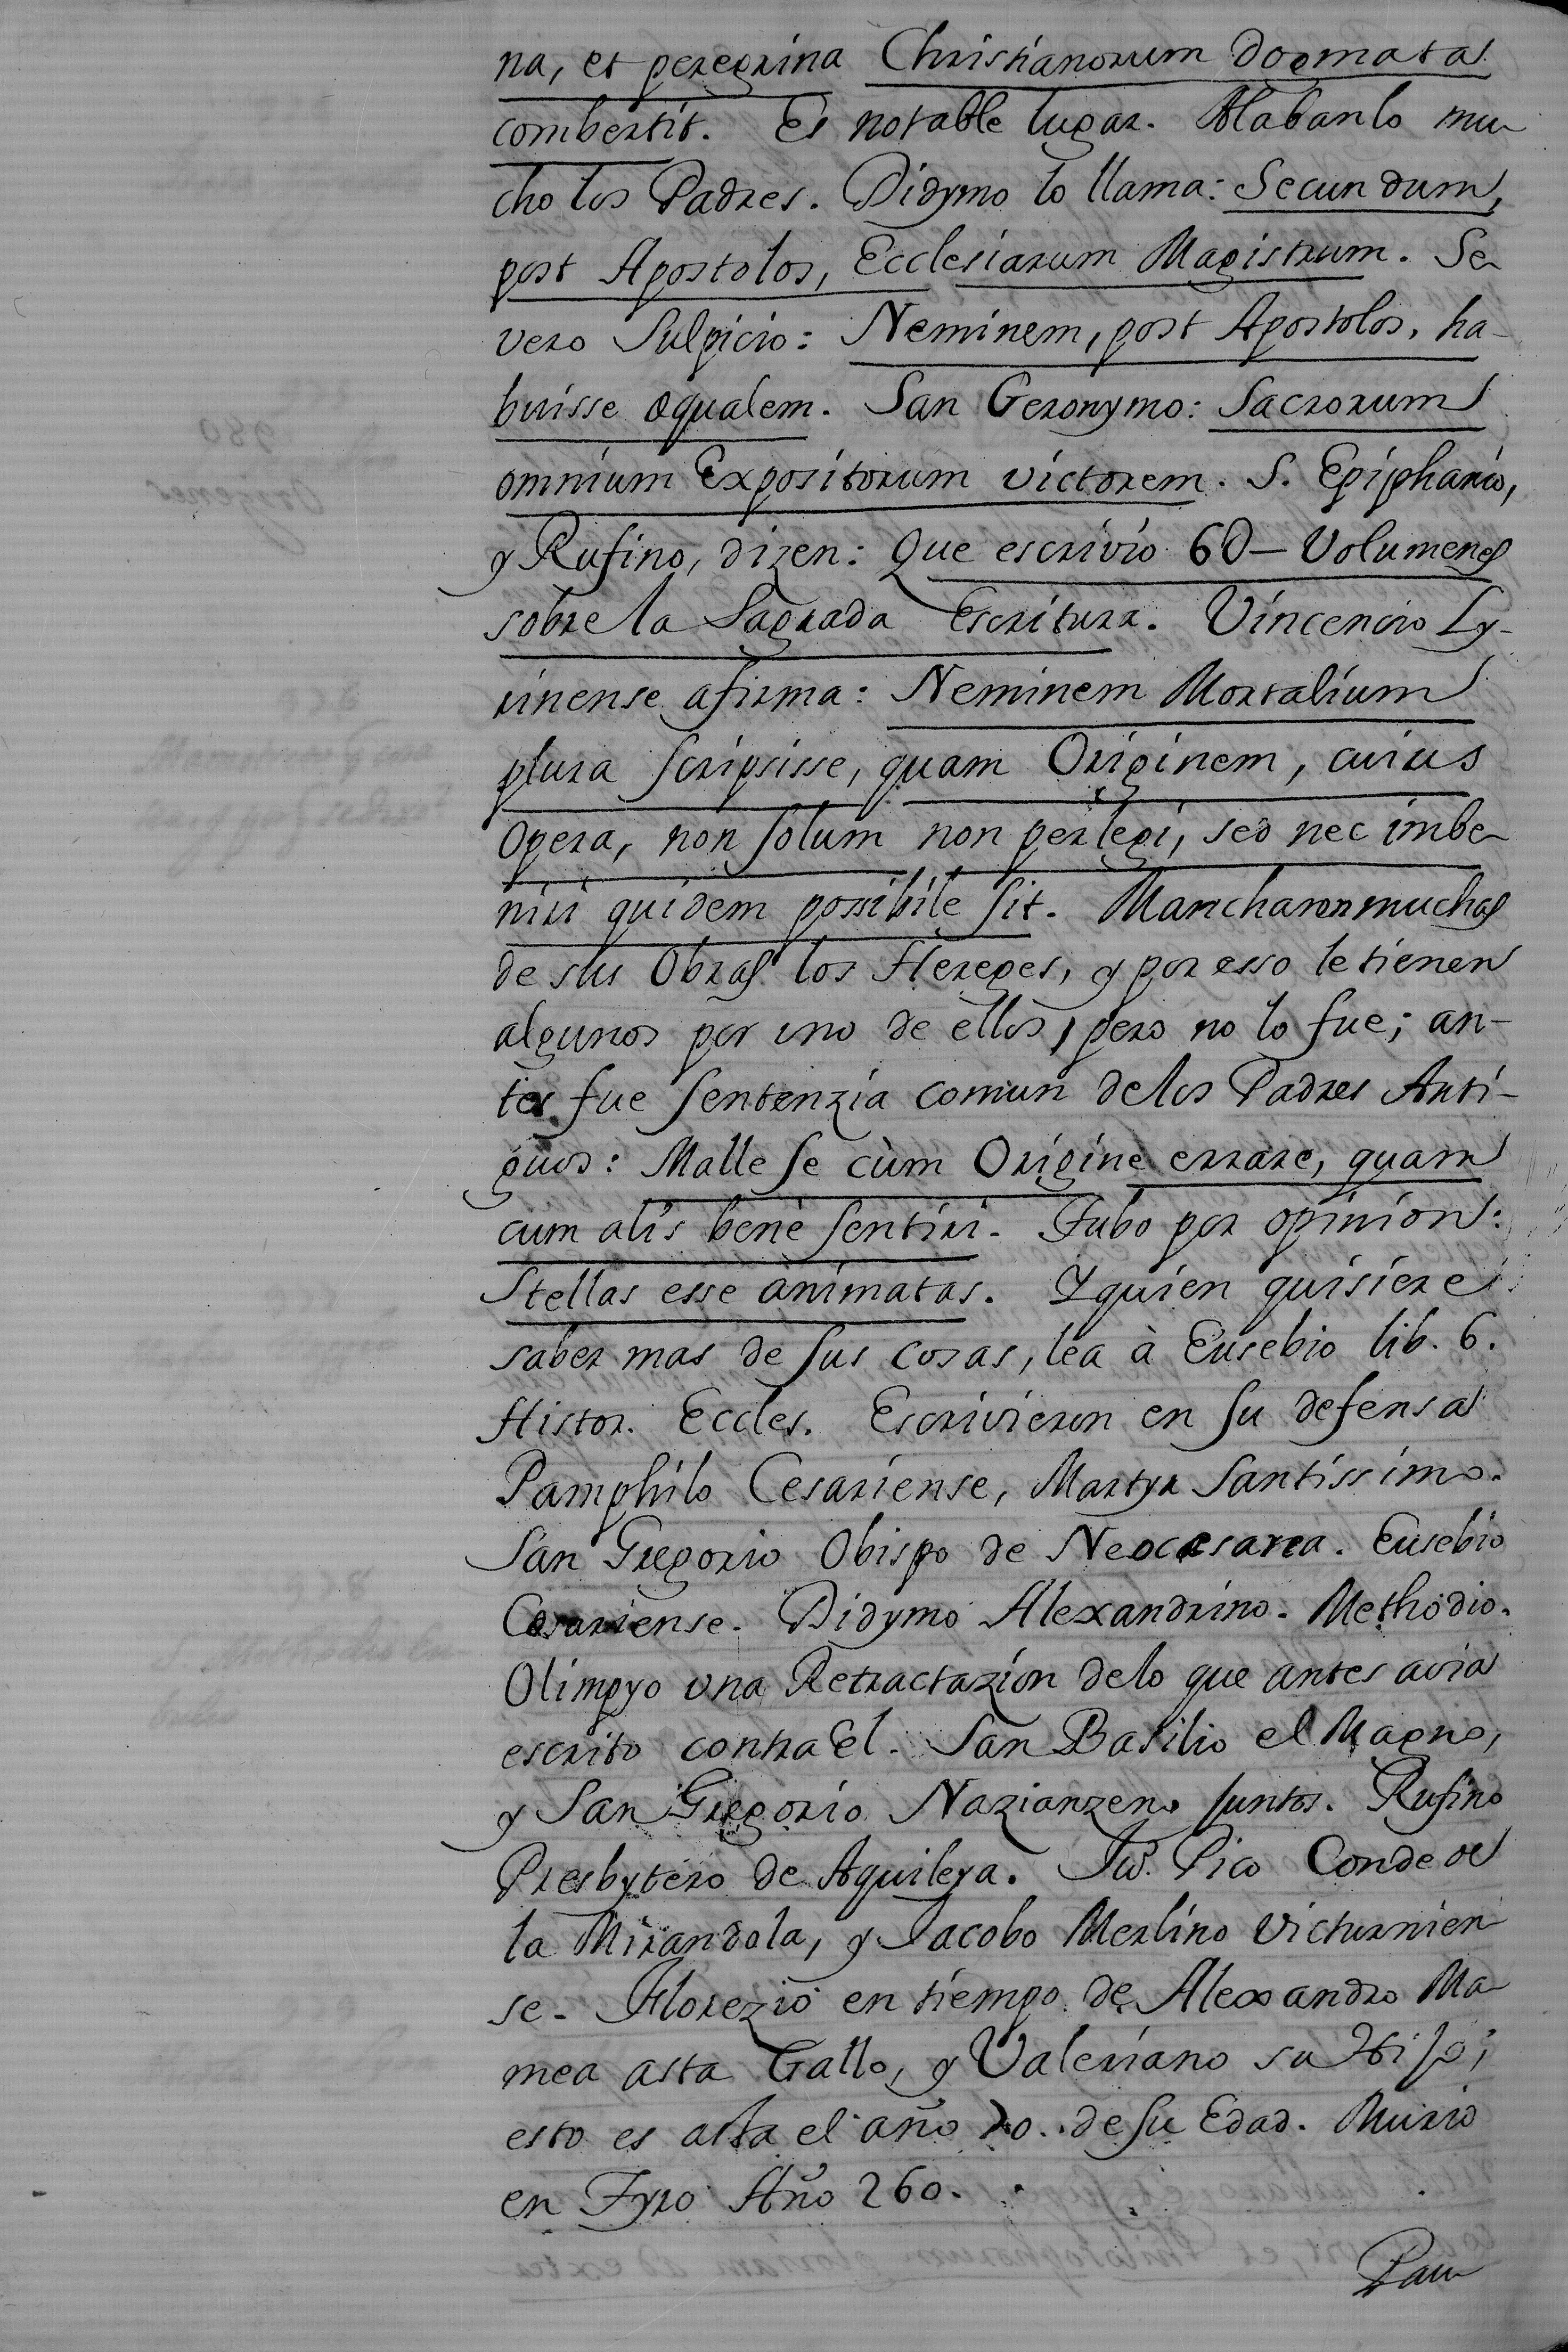 na, et peregrina Christianorum dogmata
combertit. Es notable lugar. Alabanlo mu-
cho los Padres. Didymo lo llama: Secundum,
post Apostolos, Ecclesiarum Magistrum. Se-
vero Sulpicio: Neminem, post Apostolos, ha-
buisse æqualem. San Geronymo: Sacrorum
omnium Expositorum victorem. S. Epiphanio,
y Rufino, dizen: Que escrivio 60— Volumenes
sobre la Sagrada Escritura. Vincencio Ly-
rinense afirma: Neminem Mortalium
plura scripsisse, quam Originem, cuius
Opera, non solum non perlegi, sed nec imbe-
niri quidem possibile sit. Mancharon muchas
de sus Obras los Hereges, y por esso le tienen
algunos por uno de ellos, pero no lo fue; an-
tes fue sentenzia comun de los Padres Anti-
guos: Malle se cùm Origine errare, quam
cum alÿs benè sentiri. Tubo por opinion:
Stellas esse animatas. Y quien quisiere
saber mas de sus cosas, lea à Eusebio lib. 6.
Histor. Eccles. Escrivieron en su defensa
Pamphilo Cesariense, Martyr Santissimo.
San Gregorio Obispo de Neocesarea. Eusebio
Cesariense. Didymo Alexandrino. Methodio.
Olimpyo una Retractazion de lo que antes avia
escrito contra El. San Basilio el Magno,
y San Gregorio Nazianzeno juntos. Rufino
Presbytero de Aquileya. Pico Conde de
la Mirandola, y Jacobo Merlino Victurnien-
se. Florezio en tiempo de Alexandro Ma-
mea asta Gallo, y Valeriano su Hijo;
esto es asta el año 70. de su Edad. Murio
en Tyro Año 260.
Pam-